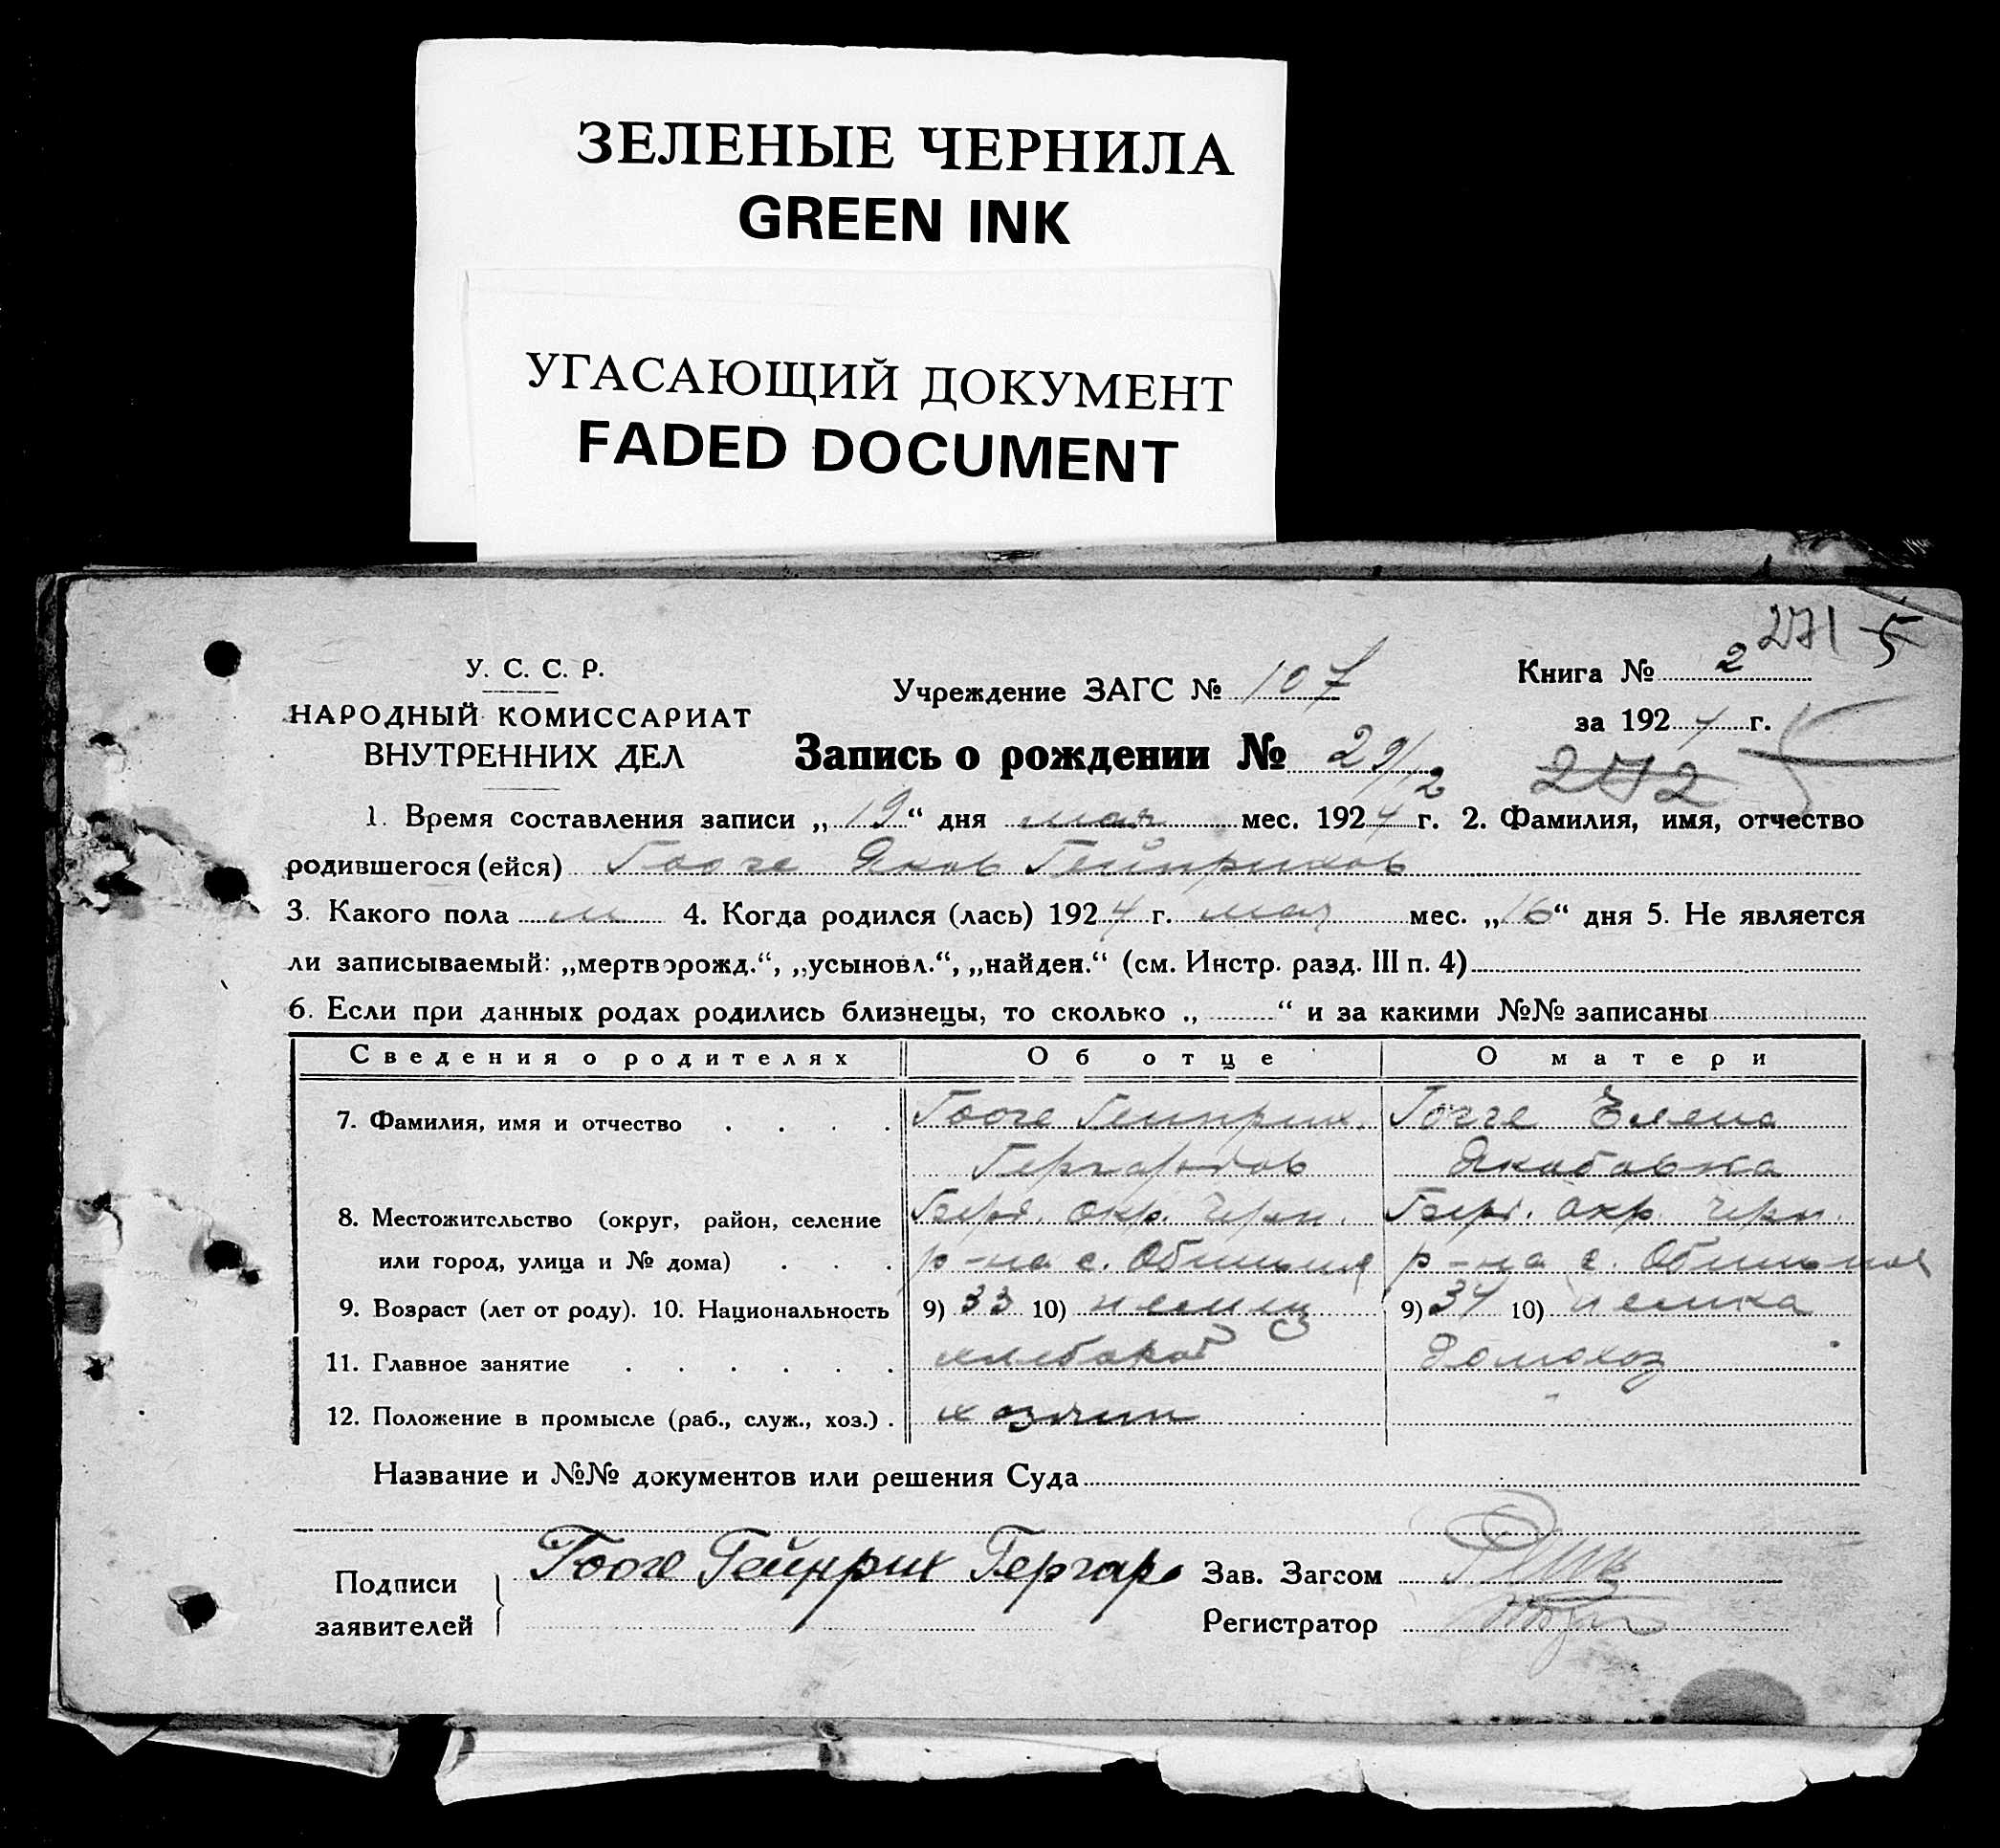 ЗЕЛЕНЫЕ ЧЕРНИЛА
GREEN INK
УГАСАЮЩИЙ ДОКУМЕНТ
FADED DOCUMENT
271 5
У. С. С. Р.
НАРОДНЫЙ КОМИССАРИАТ
ВНУТРЕННИХ ДЕЛ
Учреждение ЗАГС № 107
Книга № 2
за 1924 г.
Запись о рождении № 29/2
272
1. Время составления записи „19“ дня мая мес. 1924 г. 2. Фамилия, имя, отчество
родившегося (ейся) Гооге Яков Гейнрихов
3. Какого пола м 4. Когда родился (лась) 1924 г. мая мес. „16“ дня 5. Не является
ли записываемый: „мертворожд.“, „усыновл.“, „найден.“ (см. Инстр. разд. III п. 4)
6. Если при данных родах родились близнецы, то сколько „ “ и за какими №№ записаны
Сведения о родителях Об отце О матери
7. Фамилия, имя и отчество Гооге Гейнрих. Гогге Елена
Гергардов Якобовна
8. Местожительство (округ, район, селение Берд. окр. Черн. Берд. окр. Черн.
или город, улица и № дома) р-на с. р-на с.
9. Возраст (лет от роду). 10. Национальность 9) 33 10) немец 9) 34 10) немка
11. Главное занятие хлебороб домохоз
12. Положение в промысле (раб., служ., хоз.) хозяин
Название и №№ документов или решения Суда
Подписи Гооге Гейнрих Гергар Зав. Загсом
заявителей Регистратор